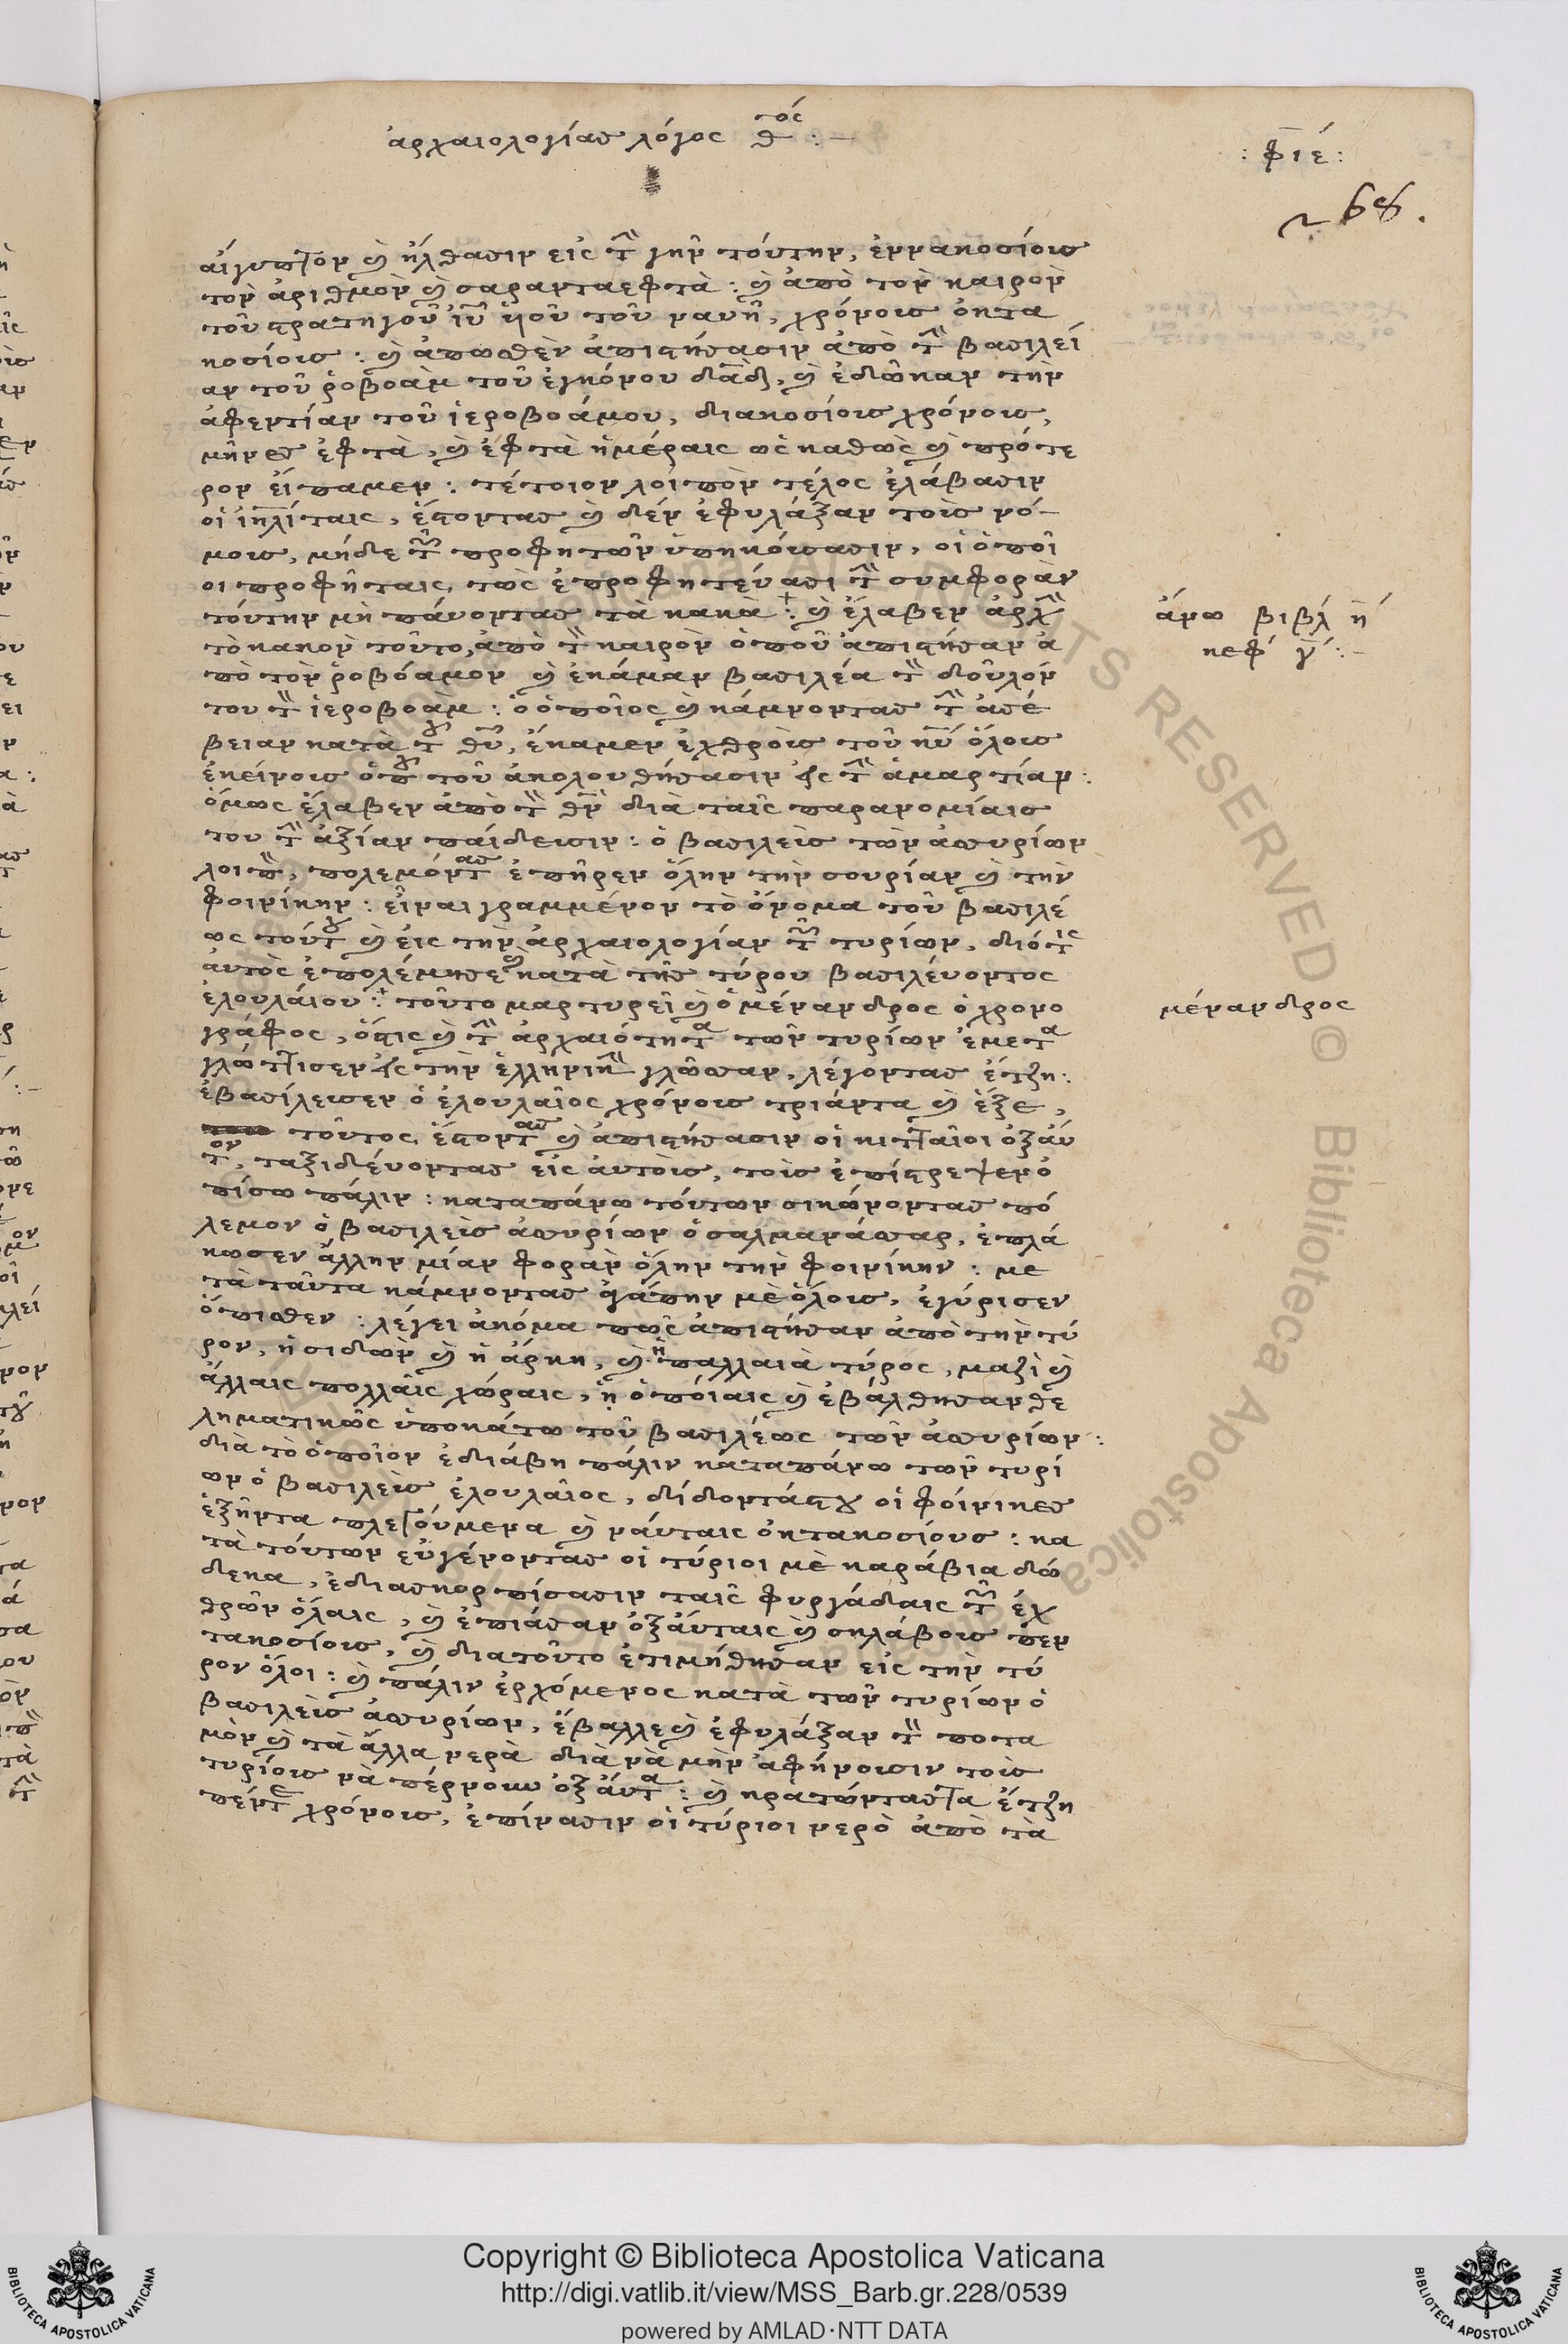 ἀρχαιολογίας λόγος θ^τος :-
: φιέ :
~ 68.
αἴγυπτον ϗ ἤλθασιν εἰς τ̑ γην̑ τούτην, ἐννακοσίους
τον ἀριθμὸν ϗ σαρανταεφτὰ : ϗ ἀπὸ τὸν καιρὸν
τοῦ στρατηγοῦ ἰυ̅ ὑιοῦ τοῦ ναυῆ, χρόνους ὀκτα
κοσίους : ϗ ἀπωθὲν ἀπιστήσασιν ἀπὸ τ̑ βασιλεί
αν τοῦ ῥοβοὰμ τοῦ ἐγκόνου δα̅δ, ϗ ἐδῶκαν τὴν
ἀφεντίαν τοῦ ἱεροβοάμου, διακοσίους χρόνους,
μῆνες ἑφτὰ, ϗ ἑφτὰ ἡμέραις ὡς καθὼς ϗ πρότε
ρον εἴπαμεν : τέτοιον λοιπὸν τέλος ἐλάβασιν
οἱ ἰη̅λίταις, ἔστοντας ϗ δέν ἐφυλάξαν τοὺς νό-
μους, μήδε τ̑ προφητῶν ὑπηκούσασιν, οἱ ὁποῖ
οι προφῆταις, τὼς ἐπροφητεύασι τ̑ συμφορὰν
τούτην μὴ πάυοντας τὰ κακὰ : ϗ ἔλαβεν ἀρχ̑
τὸ κακὸν τοῦτο, ἀπὸ τ̑ καιρὸν ὁποῦ ἀπιστήσαν ἀ
πὸ τὸν ῥοβόαμον ϗ ἐκάμαν βασιλέα τ̑ δοῦλόν
του τ̑ ἱεροβοὰμ : ὁ ὁποῖος ϗ κάμνοντας τ̑ ἀσέ
βειαν κατὰ τȣ̑ θυ̅, ἔκαμεν ἐχθροὺς τοῦ κυ̅ ὅλους
ἐκείνους ὁπȣ̑ τοῦ ἀκολουθήσασιν εἰς τ̑ ἁμαρτίαν :
ὅμως ἔλαβεν ἀπὸ τ̑ θν̅ διὰ ταῖς παρανομίαις
του τ̑ ἀξίαν παίδευσιν : ὁ βασιλεὺς τῶν ἀσσυρίων
λοιπ̑, πολεμόντας ἐπῆρεν ὅλην τὴν σουρίαν ϗ τὴν
φοινίκην : εἶναι γραμμένον τὸ ὄνομα τοῦ βασιλέ
ως τούτȣ ϗ εἰς τὴν ἀρχαιολογίαν τ̑ τυρίων, διότὶς
ἀυτὸς ἐπολέμησε ϗ κατὰ τῆς τύρου βασιλέυοντος
ἐλουλάιου : τοῦτο μαρτυρεῖ ϗ ὁ μένανδρος ὁ χρονο
γράφος, ὅστις ϗ τ̑ ἀρχαιότητα τῶν τυρίων ἐμετα
γλώττισεν εἰς τὴν ἑλληνικ̑ γλῶσσαν, λέγοντας ἔτζη :
ἐβασίλευσεν ὁ ἐλουλαῖος χρόνους τριάντα ϗ ἕξε,
τοῦτος, ἔστοντας ϗ ἀπιστήσασιν οἱ κιτταῖοι ὀξαύ
τον, ταξιδέυοντας εἰς ἀυτοὺς, τοὺς ἐπίστρεψεν ὀ
πίσω πάλιν : καταπάνω τούτων σικώνοντας πό
λεμον ὁ βασιλεὺς ἀσσυρίων ὁ σαλμανάσσαρ, ἐπλά
κωσεν ἄλλην μίαν φορὰν ὅλην τὴν φοινίκην : με
τὰ ταῦτα κάμνοντας ἀγάπην μὲ ὅλους, ἐγύρισεν
ὄπισθεν : λέγει ἀκόμα πῶς ἀπιστήσαν ἀπὸ τὴν τύ
ρον, ἡ σιδὼν ϗ ἡ ἄρκη, ϗ ἡ παλλαιὰ τύρος, μαζὶ ϗ
ἄλλαις πολλαῖς χώραις, ἡ ὁποίαις ϗ ἐβάλθησαν θε
ληματικῶς ὑποκάτω τοῦ βασιλέως τῶν ἀσσυρίων :
διὰ τὸ ὁποῖον ἐδιάβη πάλιν κάταπάνω τῶν τυρί
ων ὁ βασιλεὺς ἐλουλαῖος, δίδοντάςτȣ οἱ φόινικες
ἑξῆντα πλετούμενα ϗ νάυταις ὀκτακοσίους : κα
τὰ τούτων εὐγένοντας οἱ τύριοι μὲ καράβια δώ
δεκα, ἐδιασκορπίσασιν ταῖς φυργάδαις τ̑ ἐχ
θρῶν ὅλαις, ϗ ἐπιάσαν ὀξάυταις ϗ σκλάβους πεν
τακοσίους, ϗ διατοῦτο ἐτιμήθησαν εἰς τὴν τύ
ρον ὅλοι : ϗ πάλιν ἐρχόμενος κατὰ τῶν τυρίων ὁ
βασιλεὺς ἀσσυρίων, ἔβαλλε ϗ ἐφυλάξαν τ̑ ποτα
μὸν ϗ τὰ ἄλλα νερὰ διὰ νὰ μὴν ἀφήνουσιν τοὺς
τυρίους νὰ πέρνουν ὀξάυτα : ϗ κρατώντάςτα ἔτζη
πέντε χρόνους, ἐπίνασιν οἱ τύριοι νερὸ ἀπὸ τὰ
ἄνω βιβλ ή
κεφ γ :-
μένανδρος
Copyright © Biblioteca Apostolica Vaticana
http://digi.vatlib.it/view/MSS_Barb.gr.228/0539
powered by AMLAD·NTT DATA